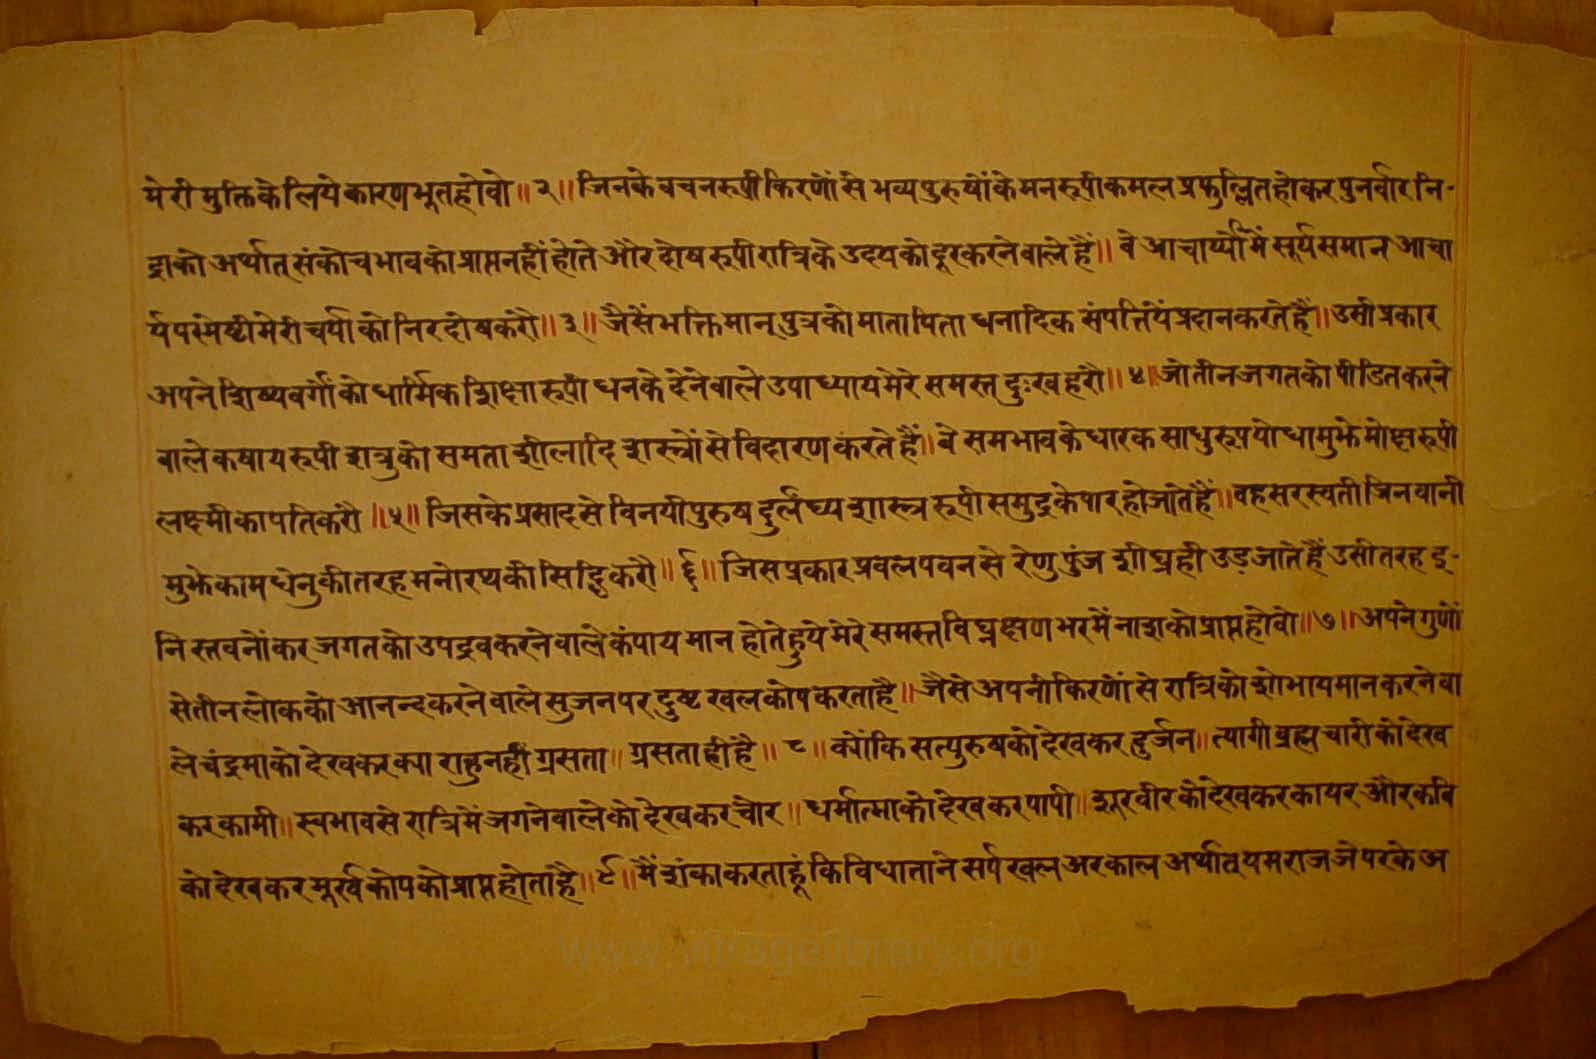 मेरी मुक्तिके लिये कारणभूत होवो ॥ २ ॥ जिनके वचनरूपी किरणों से भव्य पुरुषों के मन रूपी कमल प्रफुल्लित होकर पुनर्वार नि-
द्राको अर्थात् संकोच भाव को प्राप्त नहीं होते और दोष रूपी रात्रि के उदय को दूर करने वाले हैं ॥ वे आचार्य्यों में सूर्य समान आचा
र्य परमेष्टी मेरी चर्या को निरदोष करौ ॥ ३ ॥ जैसें भक्तिमान् पुत्र को माता पिता धनादिक संपत्तियें प्रदान करते हैं ॥ उसी प्रकार
अपने शिष्य वर्गों को धार्मिक शिक्षा रूपी धन के देने वाले उपाध्याय मेरे समस्त दुःख हरौ ॥ ४ ॥ जो तीन जगत को पीडित करने
वाले कषाय रूपी शत्रु को समता शीलादि शस्त्रों से विदारण करते हैं ॥ वे समभाव के धारक साधु रूप योधा मुझे मोक्ष रूपी
लक्ष्मी का पति करौ ॥ ५ ॥ जिसके प्रसाद से विनयी पुरुष दुर्लंघ्य शास्त्र रूपी समुद्र के पार हो जाते हैं ॥ वह सरस्वती जिनवानी
मुझे कामधेनु की तरह मनोरथ की सिद्धि करौ ॥ ६ ॥ जिस प्रकार प्रवल पवन से रेणु पुंज शीघ्र ही उड़ जाते हैं उसी तरह इ-
नि स्तवनों कर जगत को उपद्रव करने वाले कंपायमान होते हुये मेरे समस्त विघ्न क्षण भर में नाश को प्राप्त होवो ॥ ७ ॥ अपने गुणों
से तीन लोक को आनन्द करने वाले सुजन पर दुष्ट खल कोप करता है ॥ जैसे अपनी किरणों से रात्रि को शोभायमान करने वा
ले चंद्रमा को देख कर क्या राहु नहीं ग्रसता ॥ ग्रसता ही है ॥ ८ ॥ क्योंकि सत्पुरुष को देख कर दुर्जन ॥ त्यागी ब्रह्मचारी को देख
कर कामी ॥ स्वभाव से रात्रि में जगने वाले को देख कर चौर ॥ धर्मात्मा को देख कर पापी ॥ शूरवीर को देख कर कायर और कवि
को देख कर मूर्ख कोप को प्राप्त होता है ॥ ९ ॥ मैं शंका करता हूं कि विधाता ने सर्प खल अर काल अर्थात् यमराज जे पर के अ
www.vitragelibrary.org